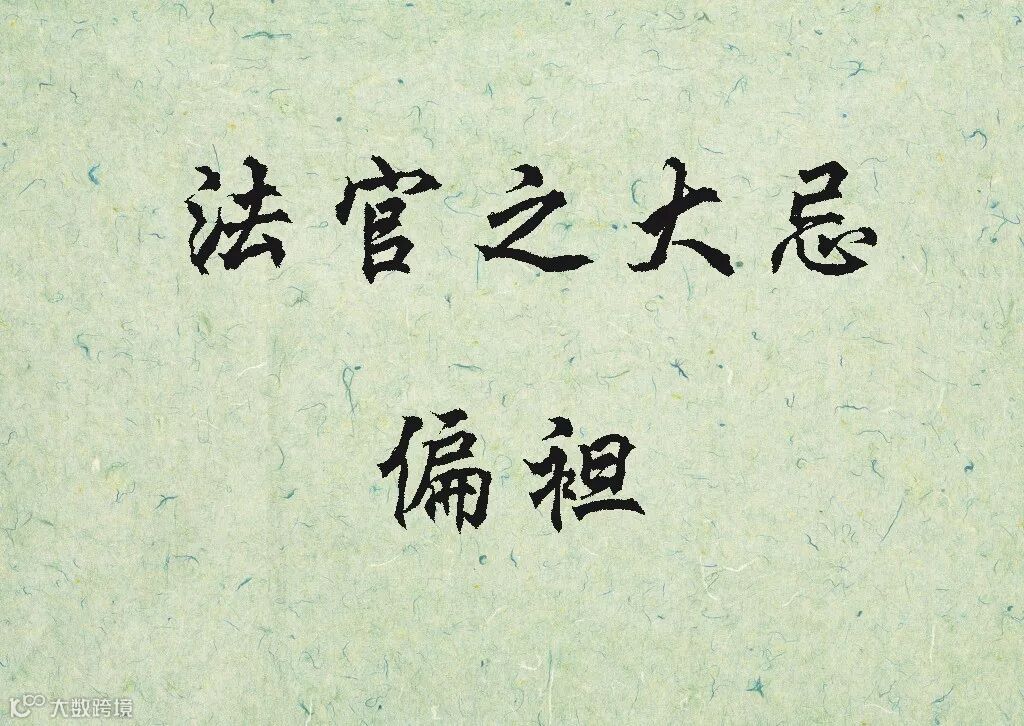 法官之大忌
偏袒
大数跨境